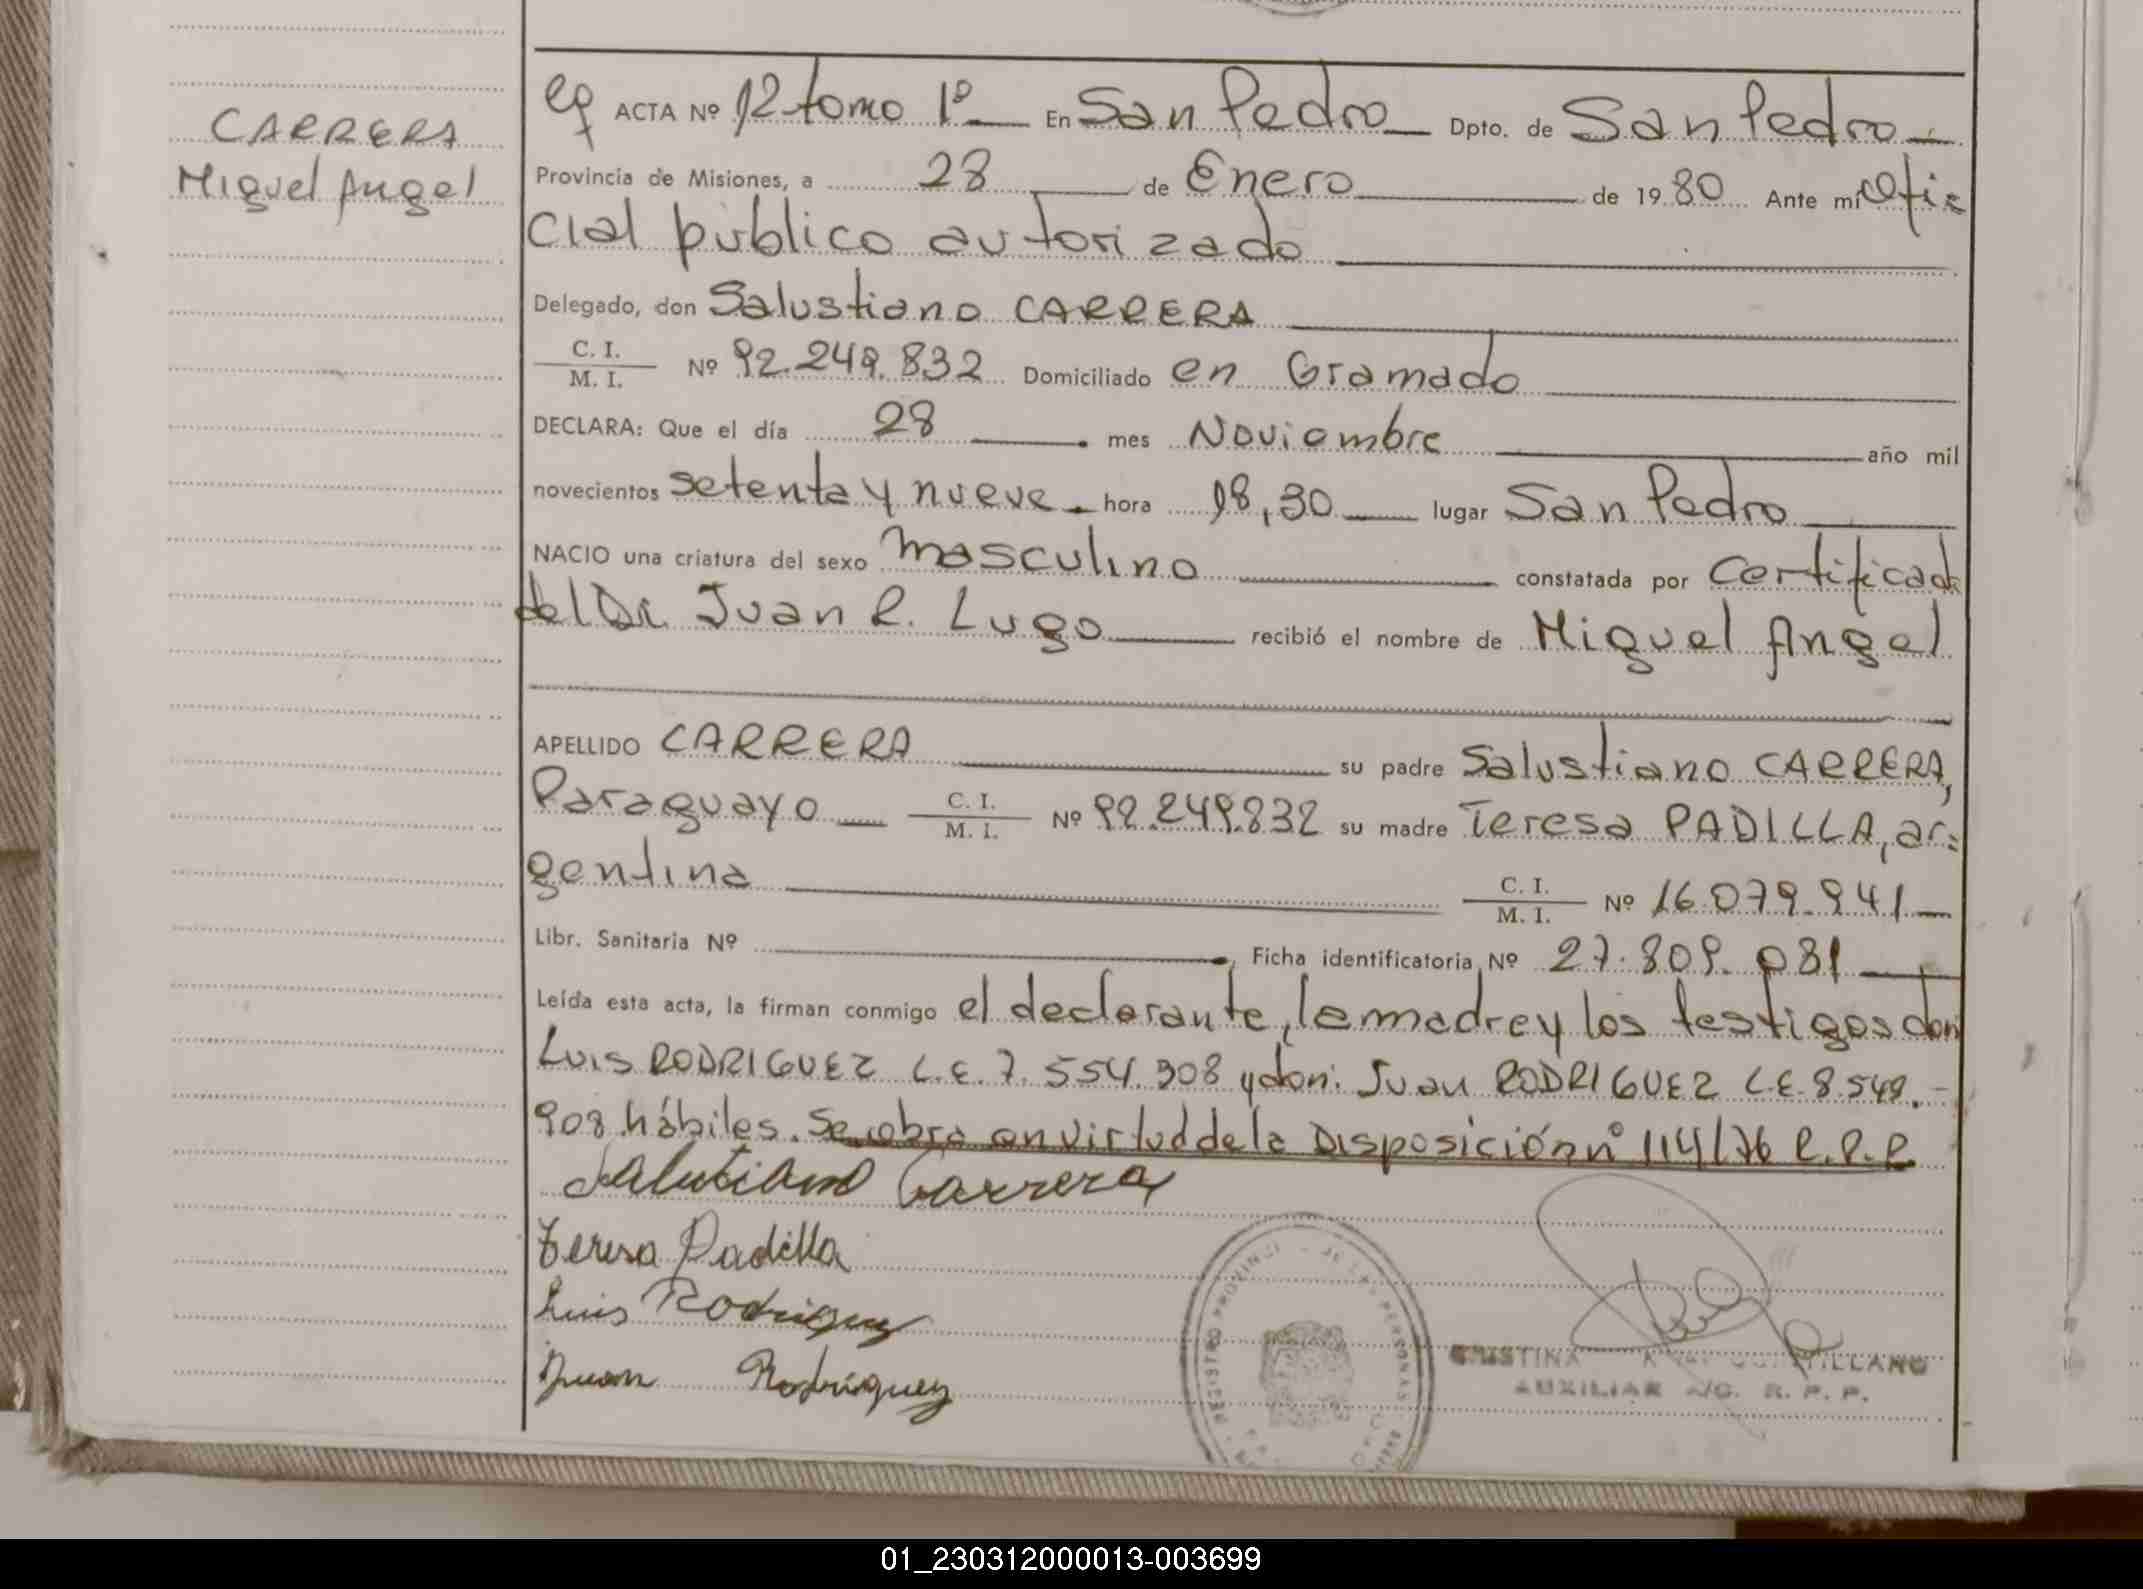 CARRERA
Miguel Angel
ACTA Nº 12 tomo 1º En San Pedro Dpto. de San Pedro
Provincia de Misiones, a 28 de Enero de 1980 Ante mi Ofi=
cial público autorizado
Delegado, don Salustiano CARRERA
C. I.
M. I. Nº 92.249.832 Domiciliado en Gramado
DECLARA: Que el día 28 mes Noviembre año mil
novecientos setenta y nueve. hora 18,30 lugar San Pedro
NACIO una criatura del sexo masculino constatada por Certificado
del Dr. Juan R. Lugo recibió el nombre de Miguel Angel
APELLIDO CARRERA su padre Salustiano CARRERA,
Paraguayo C. I. M. I. Nº 92.249.832 su madre Teresa PADILLA, ar=
gentina C. I. M. I. Nº 16.079.941
Libr. Sanitaria Nº Ficha identificatoria Nº 27.809.081
Leída esta acta, la firman conmigo el declarante, la madre y los testigos don
Luis RODRIGUEZ L.E. 7.554.908 y don: Juan RODRIGUEZ L.E. 8.549.-
908 hábiles. Se labra en virtud de la Disposición nº 114/76 R.P.P.
Salustiano Carrera
Teresa Padilla
Luis Rodriguez
Juan Rodriguez
REGISTRO PROVINCI DE LAS PERSONAS
CRISTINA
AUXILIAR A/C. R. P. P.
01_230312000013-003699